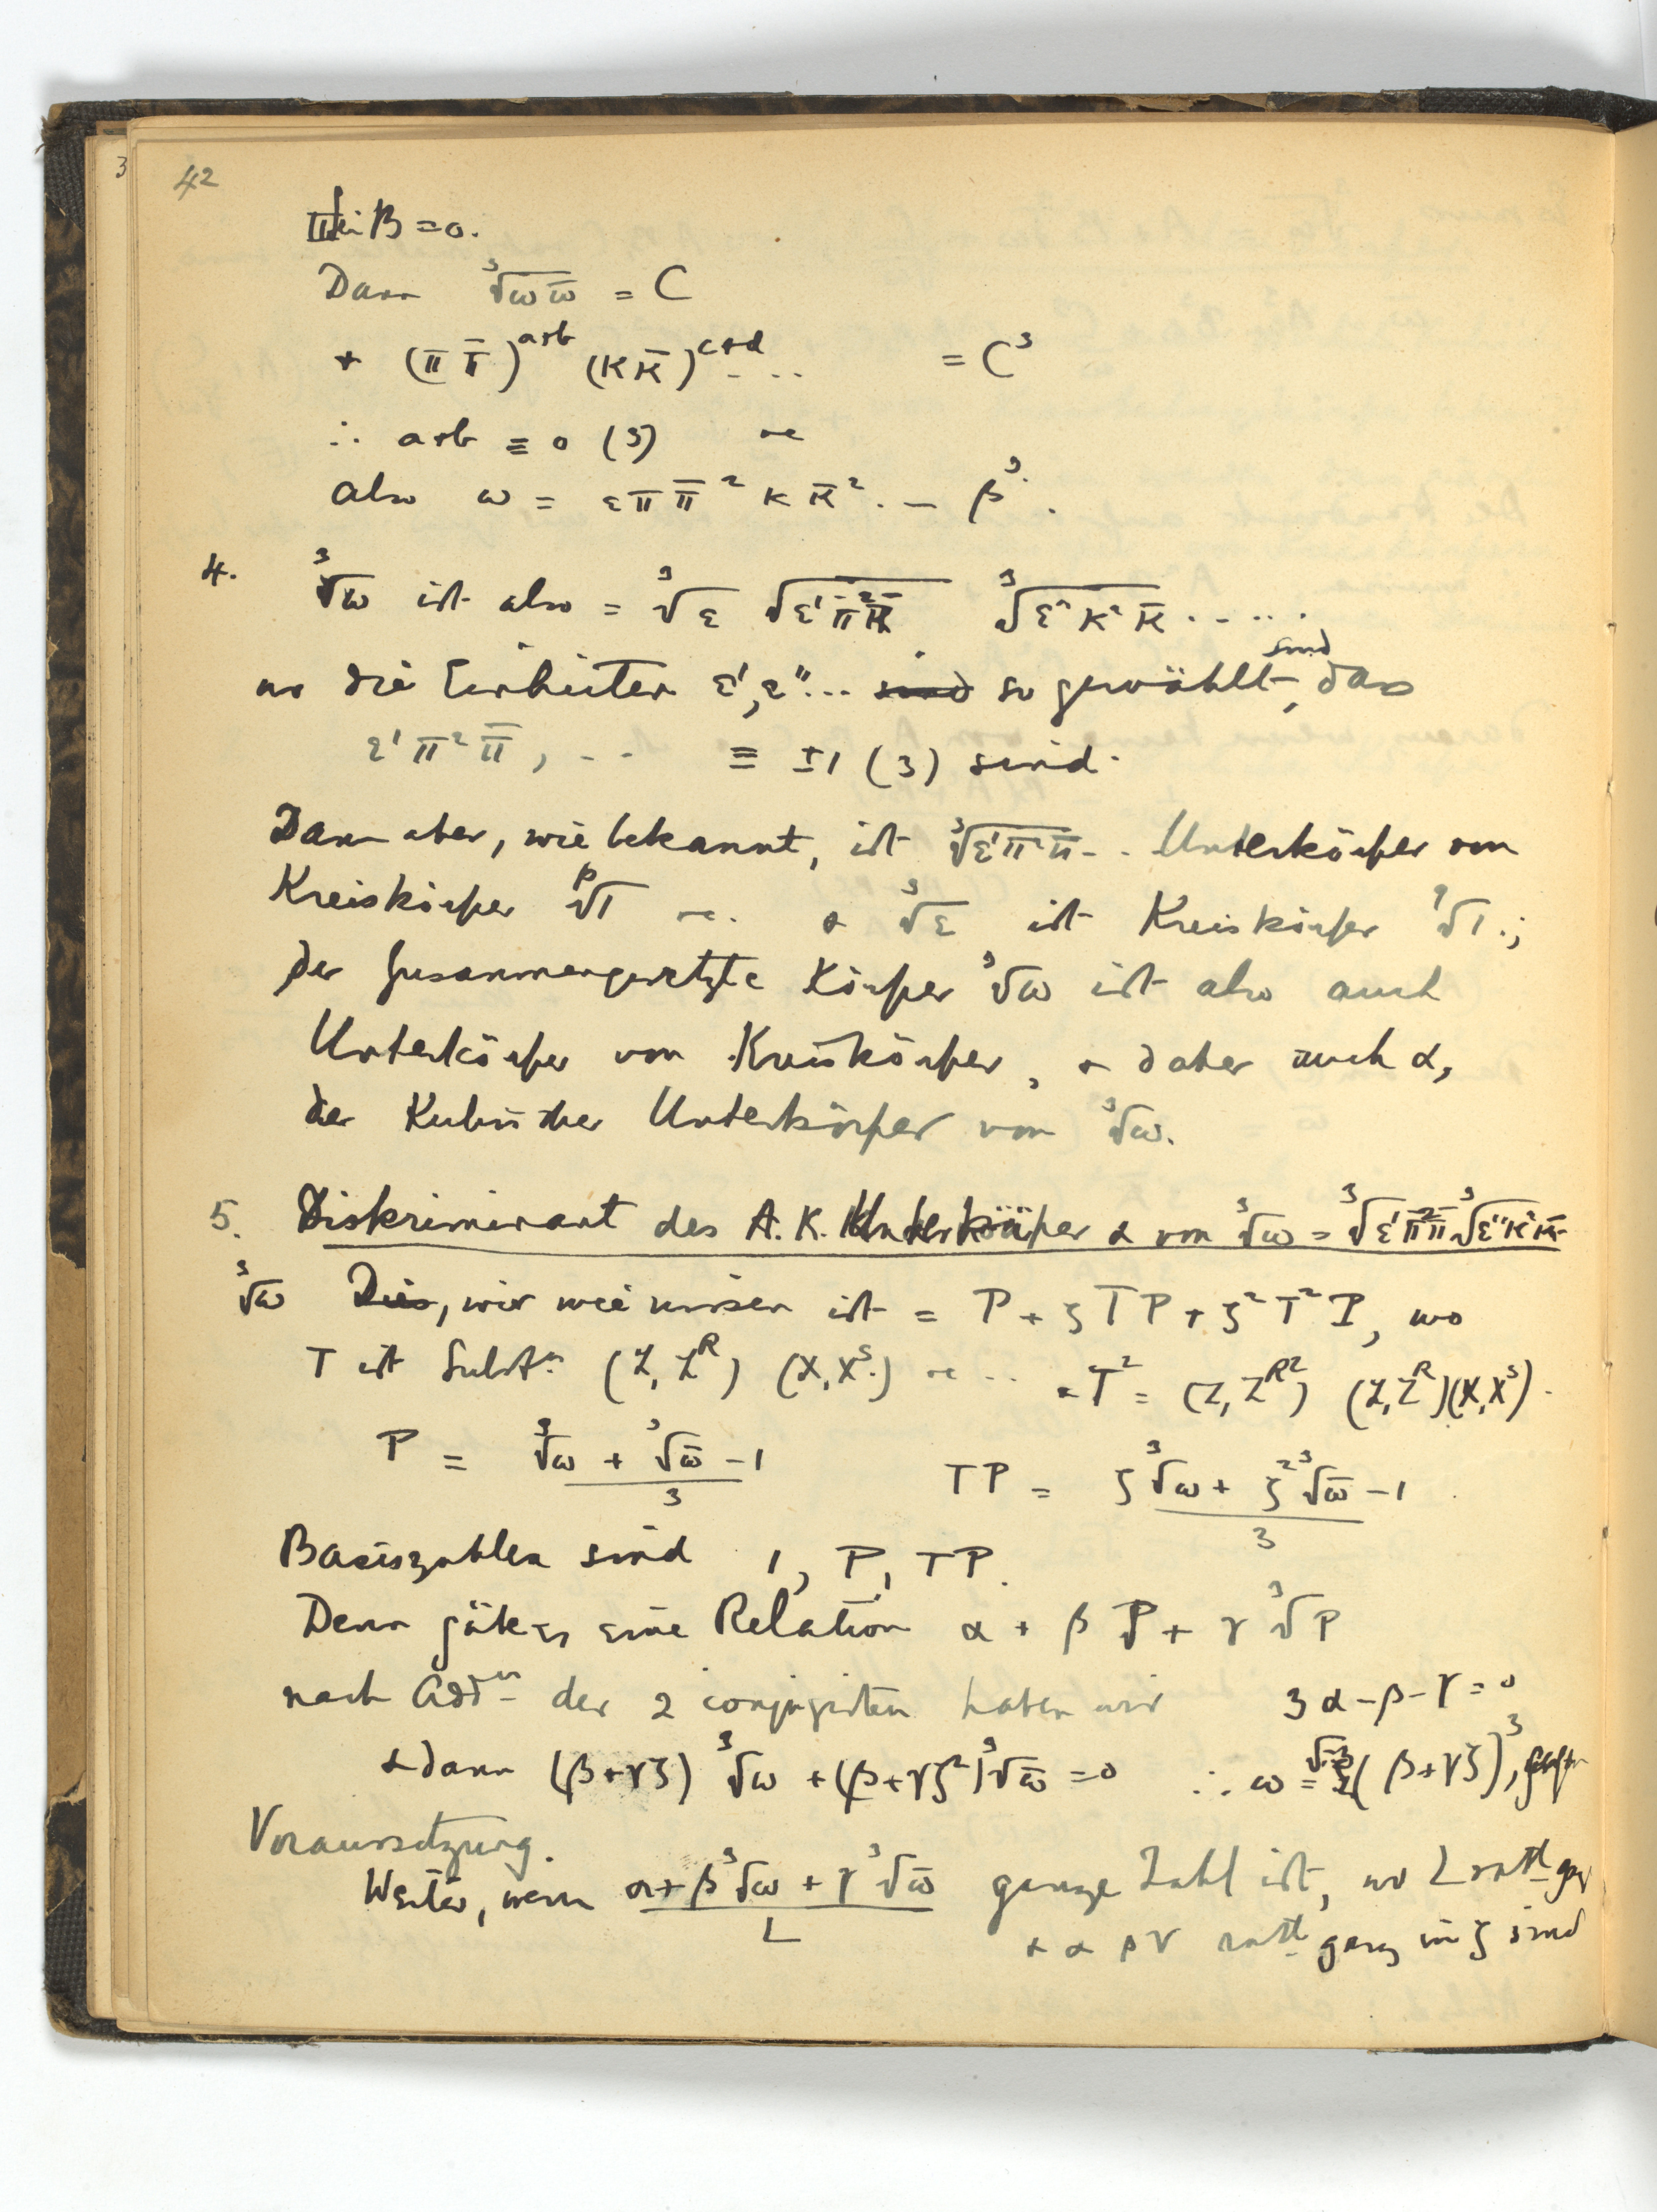 3
42
B = 0.
Dann ∛ωω̄ = C
+ (π π̄)^{a+b} (κ κ̄)^{c+d} ... = C³
∴ a+b ≡ 0 (3) etc
also ω = επ π̄² κ κ̄² . – β³.
4. ∛ω ist also = ∛ε √ε'π²π̄ ∛ε²κ²κ̄ ......
wo die Einheiten ε', ε''... sind so gewählt, sind dass
ε'π²π̄, .. ≡ ±1 (3) sind.
Dann aber, wie bekannt, ist ∛ε'π²π̄ .. Unterkörper von
Kreiskörper ᵖ√1 etc. + ∛ε ist Kreiskörper ⁹√1.;
der Zusammengesetzte Körper ∛ω ist also auch
Unterkörper von Kreiskörper, + daher auch α,
der Kubischer Unterkörper von ∛ω.
5. Diskriminant des A.K. Unterkörper α von ∛ω = ∛ε'π²π̄ ∛ε''κ²κ̄
∛ω Dies, wir wie wissen ist = P + ζTP + ζ²T²P, wo
T ist Substⁿ (Z, Z^R) (X, X^S.) etc .. + T² = (Z, Z^{R²}) (Z, Z^R)(X, X^S).
P = (∛ω + ∛ω̄ – 1)/3 TP = (ζ∛ω + ζ²∛ω̄ – 1)/3
Basiszahlen sind 1, P, TP.
Denn gäbe es eine Relation α + β P + γ ∛P
nach Addⁿ der 2 conjugirten haben wir 3α – β – γ = 0
+ dann (β+γζ) ∛ω + (β+γζ²) ∛ω̄ = 0 ∴ ω = (β+γζ)³,
Voraussetzung.
Weiter, wenn (α+β∛ω + γ∛ω̄)/L ganze Zahl ist, wo L ratl gz
+ α β γ ratl ganz in ζ sind